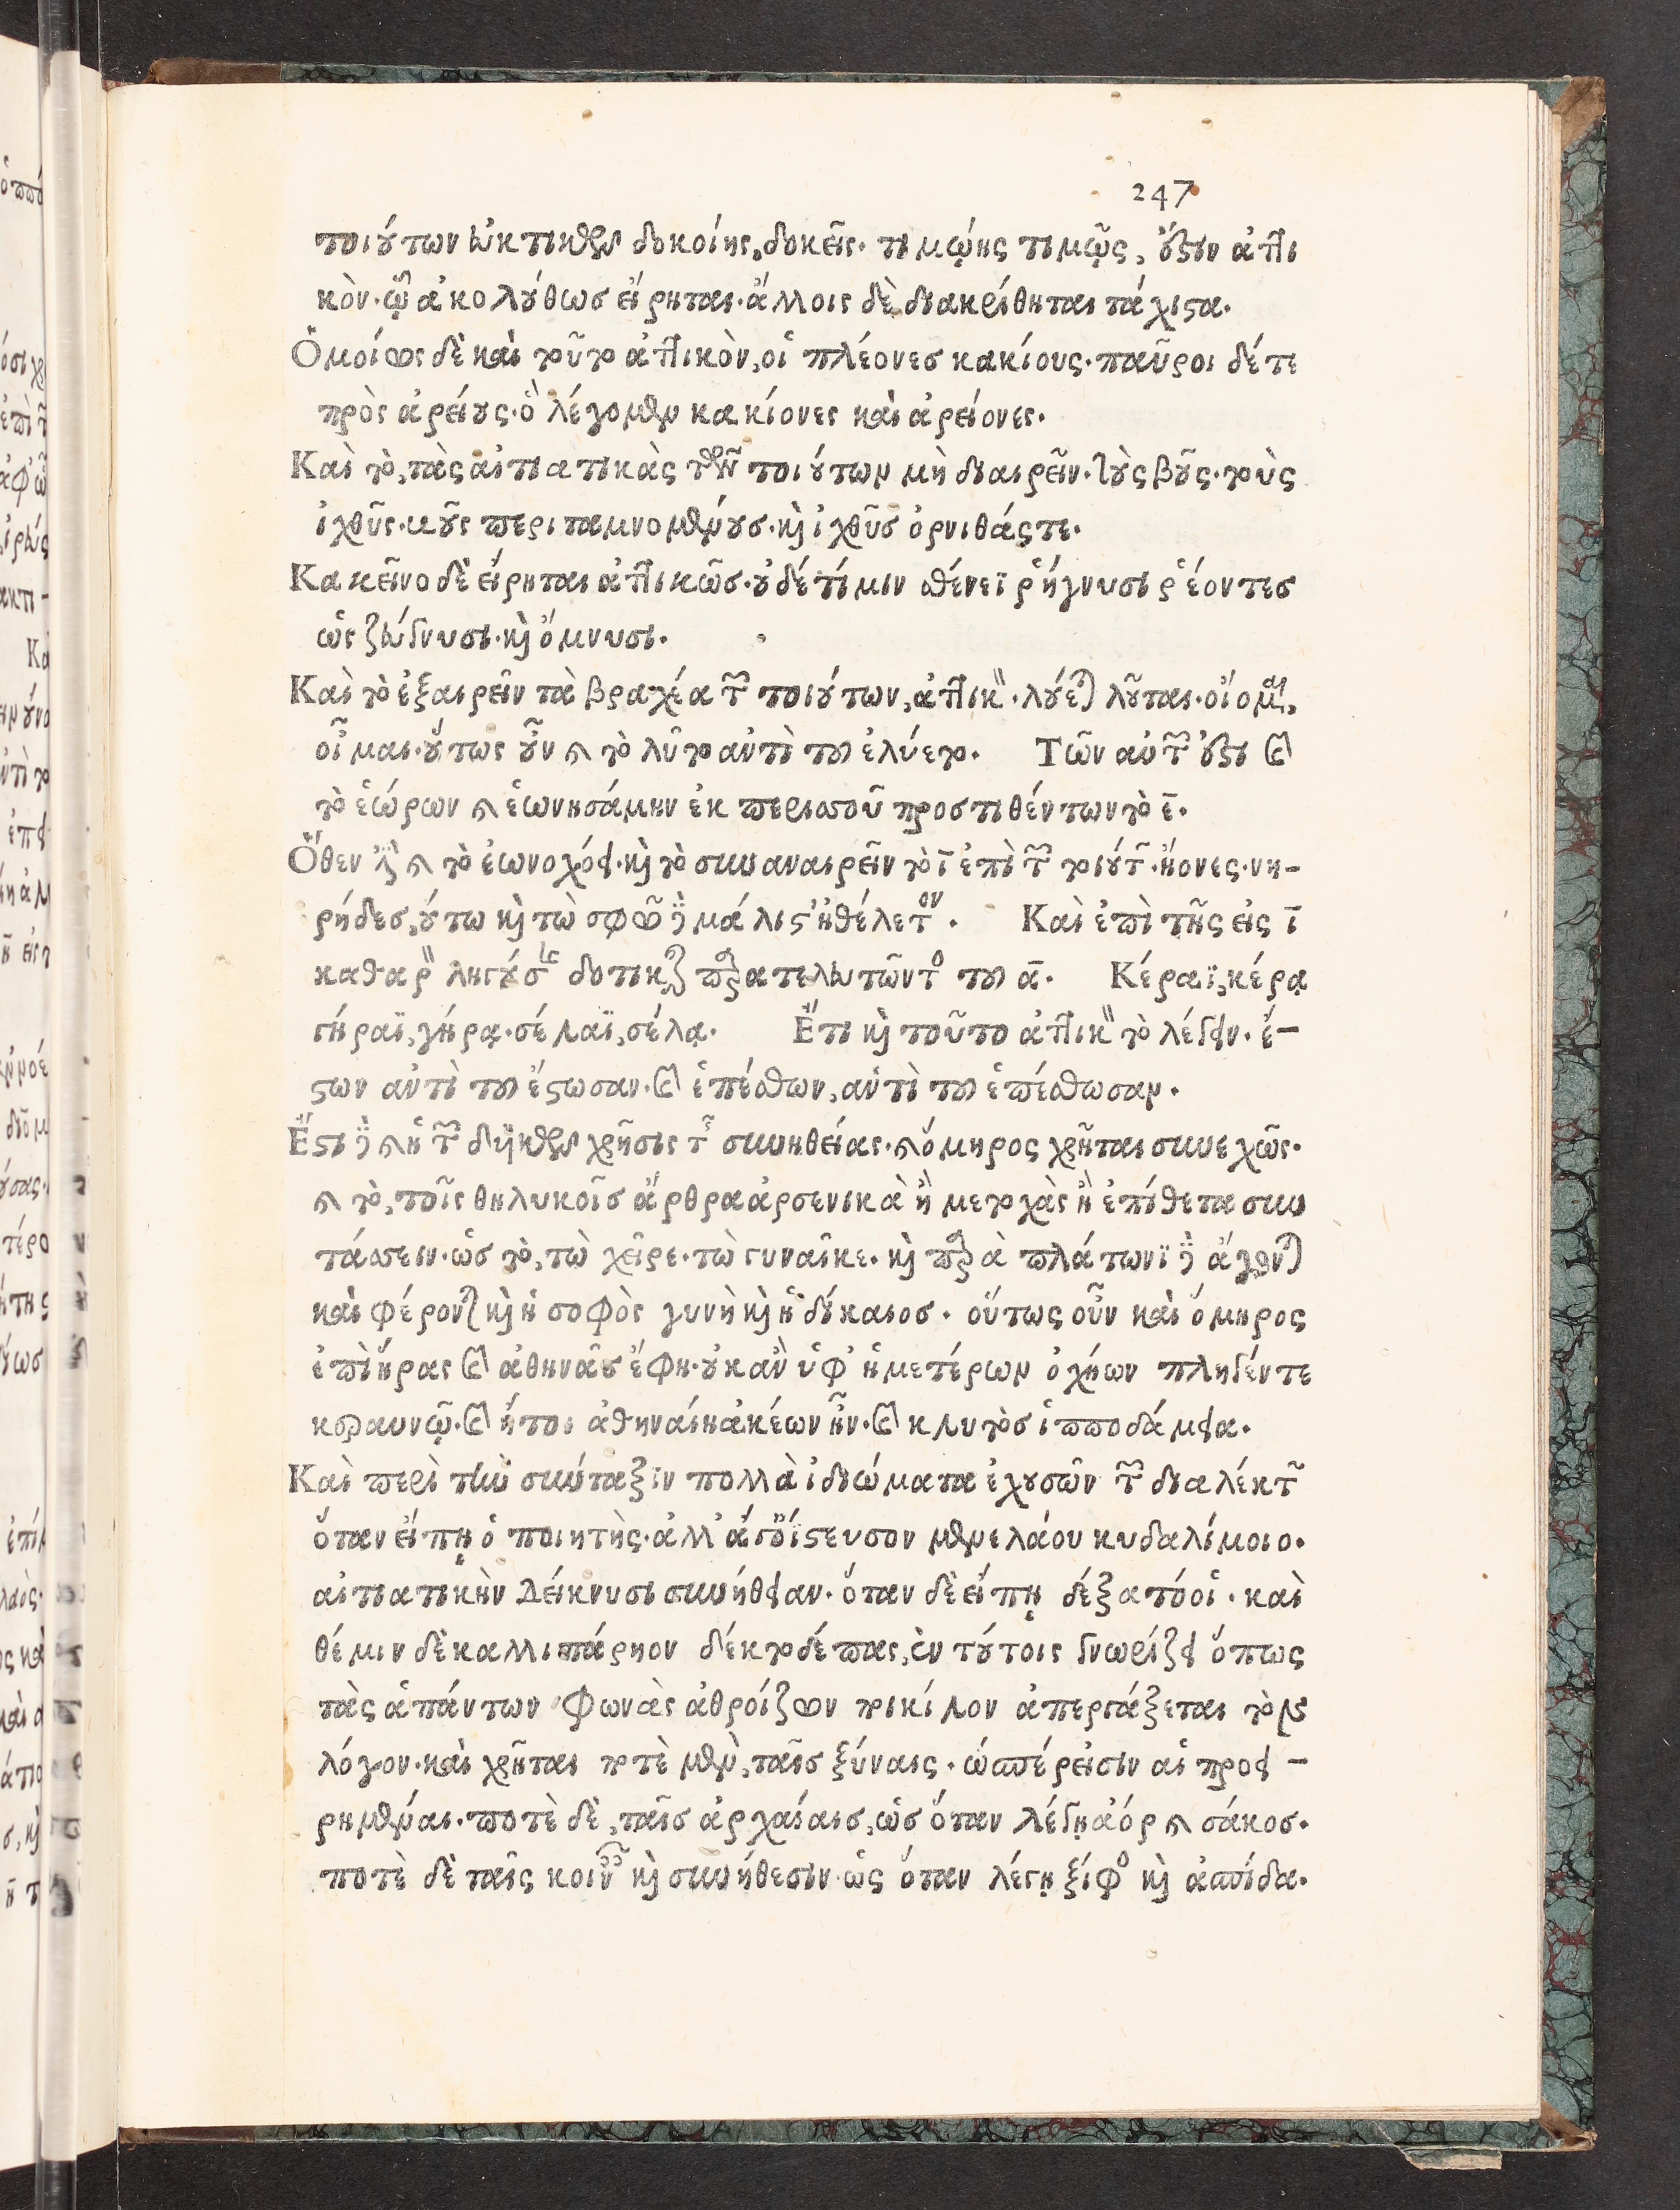 247
τοιούτων εὐκτικῶν δοκοίης, δοκεῖς. τιμῴης τιμῷς, ἔστιν ἀττι
κὸν. ᾧ ἀκολούθωσ εἴρηται. ἄλλοις δὲ διακρίθηται τάχιστα.
Ὁμοίως δὲ καὶ τοῦτο ἀττικὸν, οἱ πλέονεσ κακίους. παῦροι δέ τε
πρὸς ἀρείους. ὃ λέγομεν κακίονες καὶ ἀρείονες.
Καὶ τὸ, τὰς αἰτιατικὰς τῶν τοιούτων μὴ διαιρεῖν. τοὺς βοῦς. τοὺς
ἰχθῦς. βοῦς περιταμνομένουσ. καὶ ἰχθῦσ ὀρνιθάςτε.
Κακεῖνο δὲ εἴρηται ἀττικῶσ. οὐδέ τί μιν σθένεϊ ῥήγνυσι ῥέοντεσ
ὡς ζεύγνυσι. καὶ ὄμνυσι.
Καὶ τὸ ἐξαιρεῖν τὰ βραχέα τῶν τοιούτων, ἀττικὸν. λούεται λοῦται. οἴομαι,
οἶμαι. οὕτως οὖν καὶ τὸ λοῦτο ἀντὶ τοῦ ἐλούετο. Τῶν αὐτῶν ἐστι καὶ
τὸ ἑώρων καὶ ἐωνησάμην ἐκ περισσοῦ προστιθέντων τὸ ε̄.
Ὅθεν ἐστὶ καὶ τὸ ἐωνοχόει. καὶ τὸ συναναιρεῖν τὸ ῑ ἐπὶ τῶν τοιούτων. ἠόνες. νη-
ρήδεσ, οὕτω καὶ τὼ σφῶϊν μάλιστ' ἠθέλετον. Καὶ ἐπὶ τῆς εἰς ῑ
καθαρὸν ληγούσης δοτικῆς παρατελευτῶντος τοῦ ᾱ. Κέραϊ, κέρᾳ
γήραϊ, γήρᾳ. σέλαϊ, σέλᾳ. Ἔτι καὶ τοῦτο ἀττικὸν τὸ λέγειν. ἔ-
στων ἀντὶ τοῦ ἔστωσαν. καὶ ἐπέσθων, ἀντὶ τοῦ ἐπέσθωσαν.
Ἔστι δὲ καὶ ἡ τῶν δυϊκῶν χρῆσις τῆς συνηθείας. καὶ ὅμηρος χρῆται συνεχῶς.
καὶ τὸ, τοῖς θηλυκοῖσ ἄρθρα ἀρσενικὰ ἢ μετοχὰς ἢ ἐπίθετα συν
τάσσειν. ὡσ τὸ, τὼ χεῖρε. τὼ γυναῖκε. καὶ παρὰ πλάτωνϊ δὲ ἄγοντε
καὶ φέροντε καὶ ἡ σοφὸς γυνὴ καὶ ἡ δίκαιοσ. οὕτως οὖν καὶ ὅμηρος
ἐπὶ ἥρας καὶ ἀθηνᾶς ἔφη. οὐκ ἂν ὑφ' ἡμετέρων ὀχήων πληγέντε
κεραυνῷ. καὶ ἤτοι ἀθηναίη ἀκέων ἦν. καὶ κλυτὸσ ἱπποδάμεια.
Καὶ περὶ τὴν σύνταξϊν πολλὰ ἰδιώματα ἐχουσῶν τῶν διαλέκτων
ὅταν εἴπῃ ὁ ποιητὴς. ἀλλ' ἄγ' ὀΐστευσον μενελάου κυδαλίμοιο.
αἰτιατικὴν δείκνυσι συνήθειαν. ὅταν δὲ εἴπῃ δέξατό οἱ. καὶ
θέμιν δὲ καλλιπάρηον δέκτο δέπας, ἐν τούτοις γνωρίζει ὅπως
τὰς ἁπάντων φωνὰς ἀθροίζων ποικίλον ἀπεργάζεται τὸν
λόγον. καὶ χρῆται ποτὲ μὲν, ταῖσ ξέναις. ὥσπέρ εἰσιν αἱ προει-
ρημέναι. ποτὲ δὲ, ταῖσ ἀρχαίαισ, ὡσ ὅταν λέγῃ ἀόρ καὶ σάκοσ.
ποτὲ δὲ ταῖς κοιναῖς καὶ συνήθεσιν. ὡς ὅταν λέγῃ ξίφος καὶ ἀσπίδα.